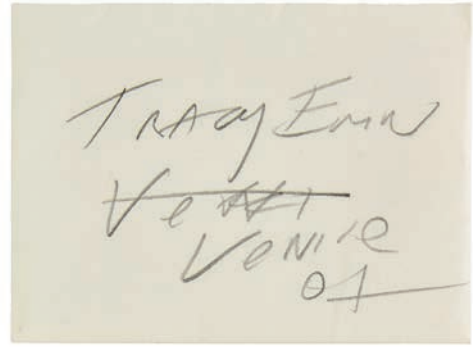 TRACY Emin
VENICE